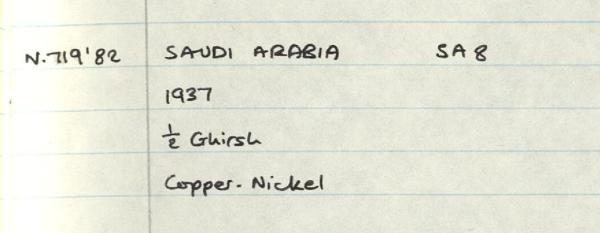 N.719'82 SAUDI ARABIA SA 8
1937
½ Ghirsh
Copper-Nickel